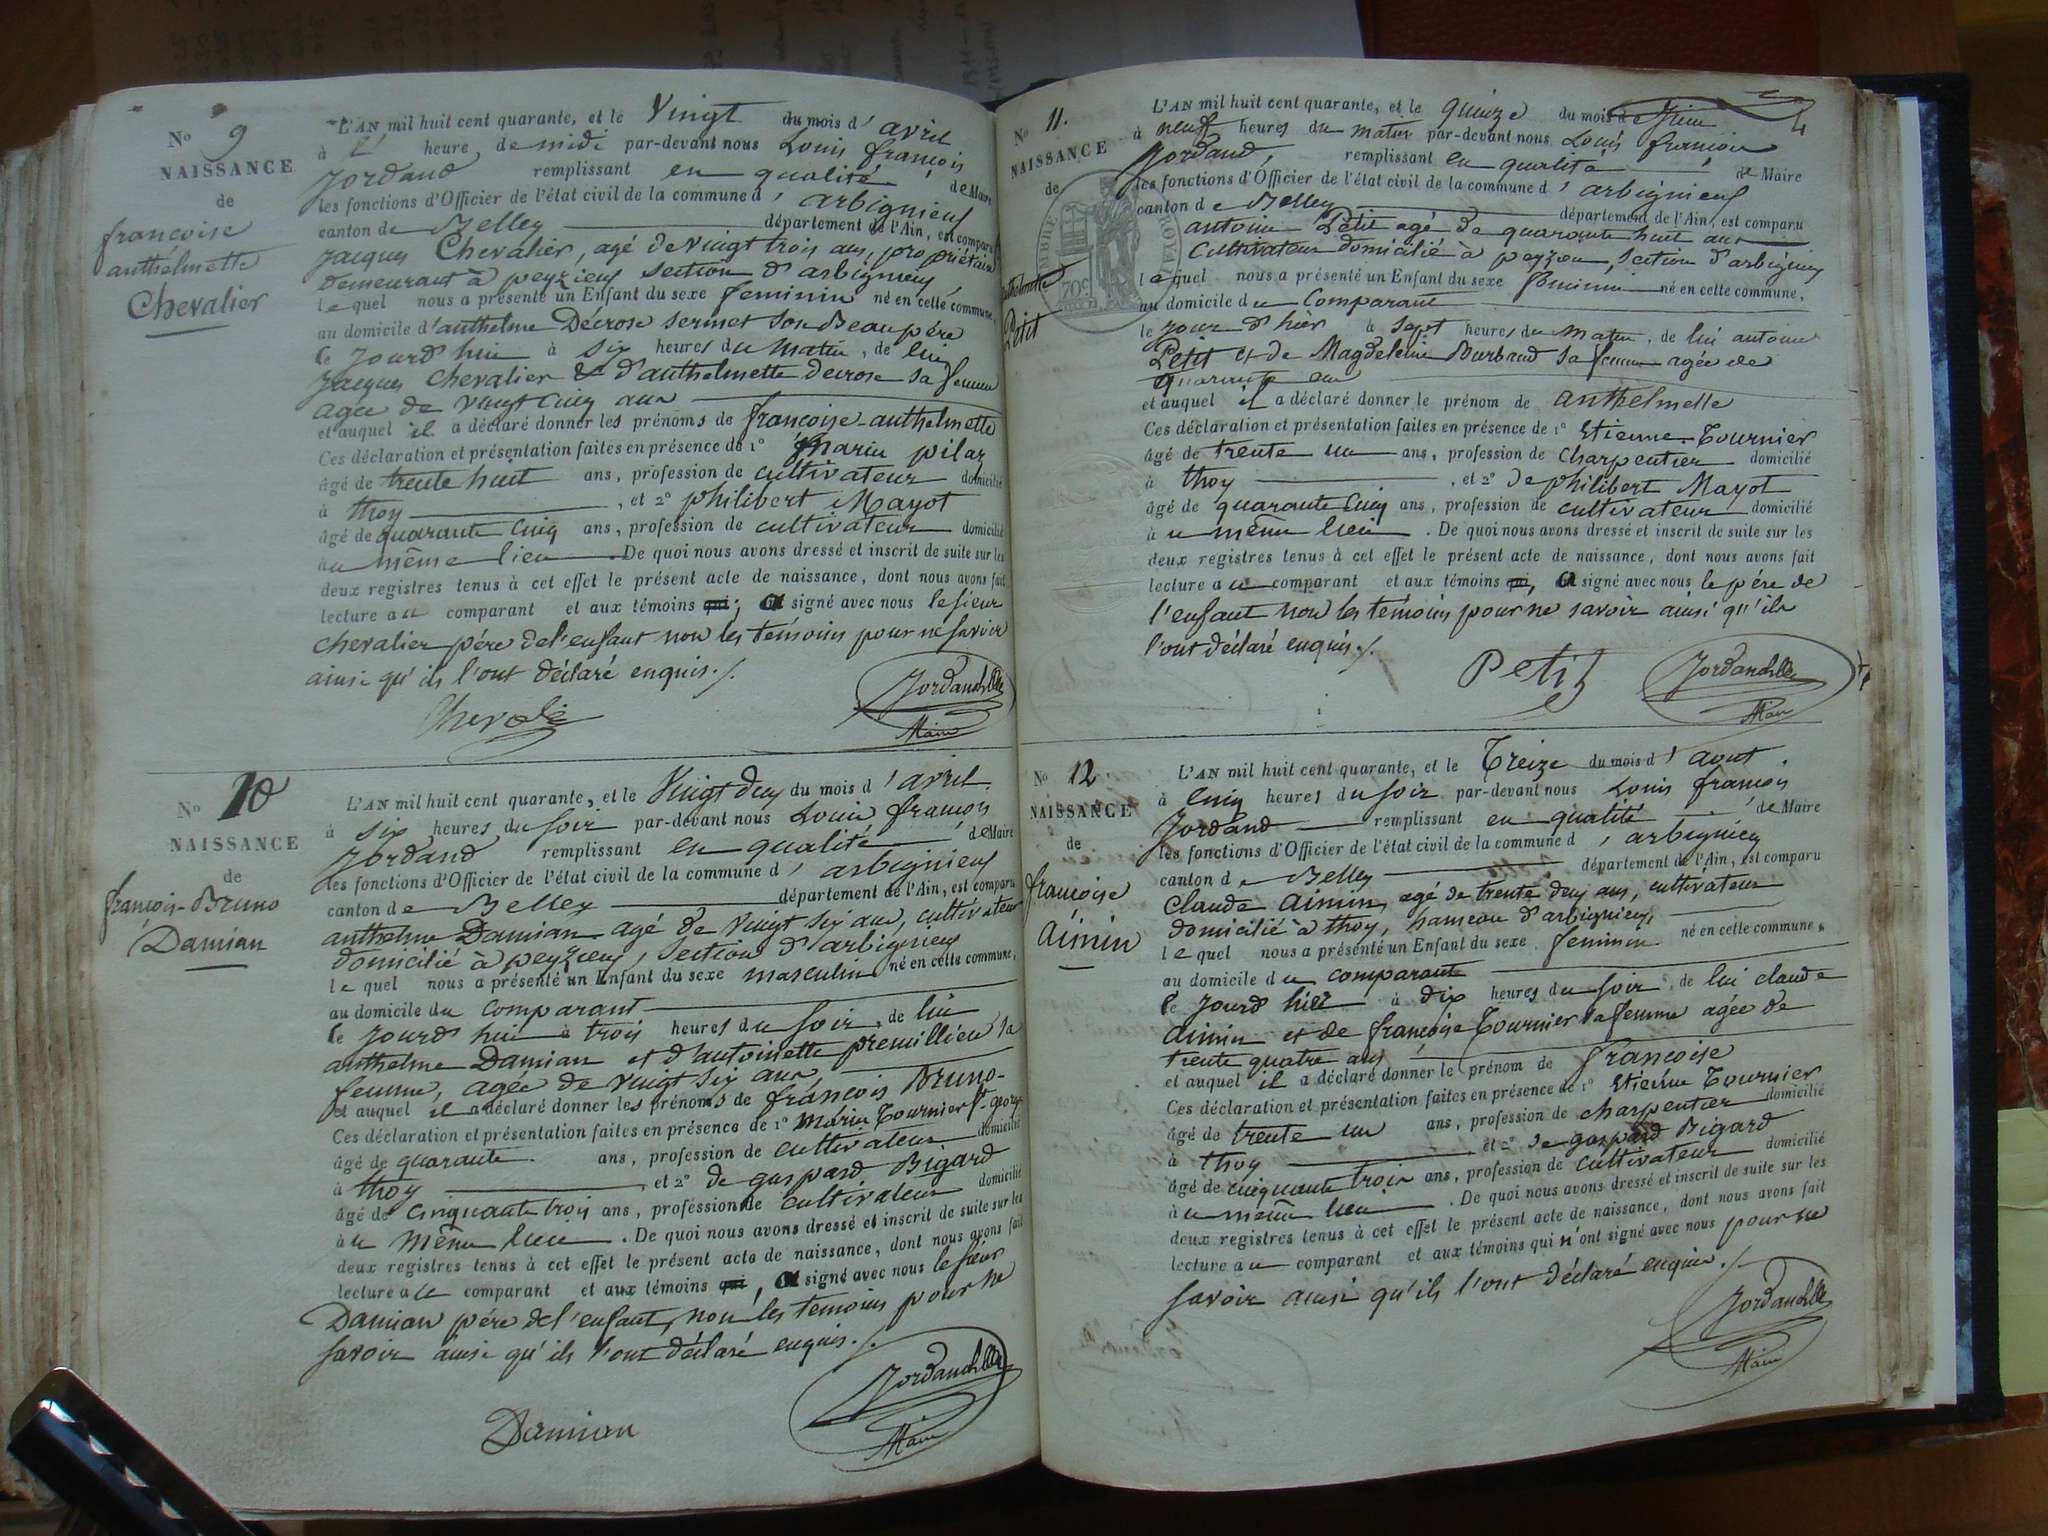 N° 9
NAISSANCE
de
françoise
anthelmette
Chevalier
L'AN mil huit cent quarante, et le Vingt du mois d'avril
à l' heure de midi par-devant nous Louis françois
Jordand remplissant en qualité de Maire
les fonctions d'Officier de l'état civil de la commune d'arbignieu
canton de Belley département de l'Ain, est comparu
Jacques Chevalier, agé de vingt trois ans, propriétaire
demeurant à peyzieu section d'arbignieu,
lequel nous a présenté un Enfant du sexe feminin né en cette commune,
au domicile d'anthelme Décrose sermet son Beau père
le jourd'hui à six heures du matin, de lui
Jacques Chevalier & d'anthelmette decrose sa femme
agée de vingt cinq ans
et auquel il a déclaré donner les prénoms de françoise-anthelmette
Ces déclaration et présentation faites en présence de 1° Marin pilaz
âgé de trente huit ans, profession de cultivateur domicilié
à thoy, et 2° philibert Mayot
âgé de quarante cinq ans, profession de cultivateur domicilié
au même lieu. De quoi nous avons dressé et inscrit de suite sur les
deux registres tenus à cet effet le présent acte de naissance, dont nous avons fait
lecture au comparant et aux témoins qui, a signé avec nous le sieur
chevalier père de l'enfant non les temoins pour ne savoir
ainsi qu'ils l'ont déclaré enquis./.
Jordand
Maire
N° 10
NAISSANCE
de
françois-Bruno
Damian
L'AN mil huit cent quarante, et le Vingt deux du mois d'avril
à six heures du soir par-devant nous Louis françois
Jordand remplissant en qualité de Maire
les fonctions d'Officier de l'état civil de la commune d'arbignieu
canton de Belley département de l'Ain, est comparu
anthelme Damian agé de vingt six ans, cultivateur
domicilié à peyzieu, section d'arbignieu
lequel nous a présenté un Enfant du sexe masculin né en cette commune,
au domicile du comparant
le jourd'hui à trois heures du soir, de lui
anthelme Damian et d'antoinette premillieu sa
femme, agée de vingt six ans,
et auquel il a déclaré donner les prénoms de françois Bruno-
Ces déclaration et présentation faites en présence de 1° Marin Tournier St. george
âgé de quarante ans, profession de cultivateur domicilié
à thoy, et 2° de gaspard Bigard
âgé de cinquante trois ans, profession de cultivateur domicilié
au même lieu. De quoi nous avons dressé et inscrit de suite sur les
deux registres tenus à cet effet le présent acte de naissance, dont nous avons fait
lecture au comparant et aux témoins qui, a signé avec nous le sieur
Damian père de l'enfant, non les temoins pour ne
savoir ainsi qu'ils l'ont déclaré enquis./.
Damian
Jordand
Maire
N° 11.
NAISSANCE
de
anthelmette
Petit
TIMBRE ROYAL
70c
L'AN mil huit cent quarante, et le quinze du mois de Juin
à neuf heures du matin par-devant nous Louis françois
Jordand, remplissant en qualité de Maire
les fonctions d'Officier de l'état civil de la commune d'arbignieu
canton de Belley département de l'Ain, est comparu
antoine Petit agé de quarante huit ans
Cultivateur domicilié à peyzieu, section d'arbignieu
lequel nous a présenté un Enfant du sexe feminin né en cette commune,
au domicile du Comparant
le jour d'hier à sept heures du matin, de lui antoine
Petit et de Magdeleine Burbaud sa femme agée de
quarante ans
et auquel il a déclaré donner le prénom de anthelmette
Ces déclaration et présentation faites en présence de 1° Etienne Tournier
âgé de trente un ans, profession de Charpentier domicilié
à thoy, et 2° de philibert Mayot
âgé de quarante cinq ans, profession de cultivateur domicilié
au même lieu. De quoi nous avons dressé et inscrit de suite sur les
deux registres tenus à cet effet le présent acte de naissance, dont nous avons fait
lecture au comparant et aux témoins qui, a signé avec nous le père de
l'enfant non les témoins pour ne savoir ainsi qu'ils
l'ont déclaré enquis./.
Petit
Jordand
Maire
N° 12
NAISSANCE
de
françoise
Aimin
L'AN mil huit cent quarante, et le Treize du mois d'aout
à cinq heures du soir par-devant nous Louis françois
Jordand remplissant en qualité de Maire
les fonctions d'Officier de l'état civil de la commune d'arbignieu
canton de Belley département de l'Ain, est comparu
Claude Aimin, agé de trente deux ans, cultivateur
domicilié à thoy, hameau d'arbignieu,
lequel nous a présenté un Enfant du sexe feminin né en cette commune,
au domicile du comparant
le jourd'hier à dix heures du soir, de lui claude
Aimin et de françoise Tournier sa femme agée de
trente quatre ans
et auquel il a déclaré donner le prénom de françoise
Ces déclaration et présentation faites en présence de 1° Etienne Tournier
âgé de trente un ans, profession de charpentier domicilié
à thoy et 2° de gaspard Bigard
âgé de cinquante trois ans, profession de cultivateur domicilié
au même lieu. De quoi nous avons dressé et inscrit de suite sur les
deux registres tenus à cet effet le présent acte de naissance, dont nous avons fait
lecture au comparant et aux témoins qui n'ont signé avec nous pour ne
savoir ainsi qu'ils l'ont déclaré enquis./.
Jordand
Maire